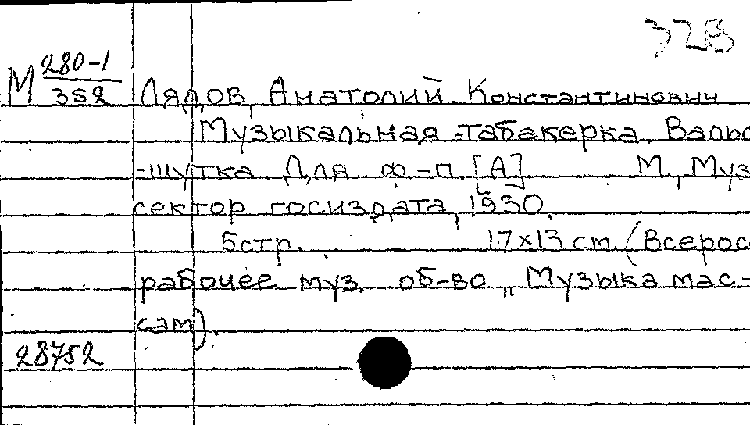 32В
М 280-1
352
Лядов, Анатолий Константинович
Музыкальная табакерка. Вальс
-шутка Для ф-п. [А] М., Муз
сектор госиздата, 1930.
5стр. 17х13 ст. (Всерос
рабочее муз. об-во „Музыка мас-
сам).
28752